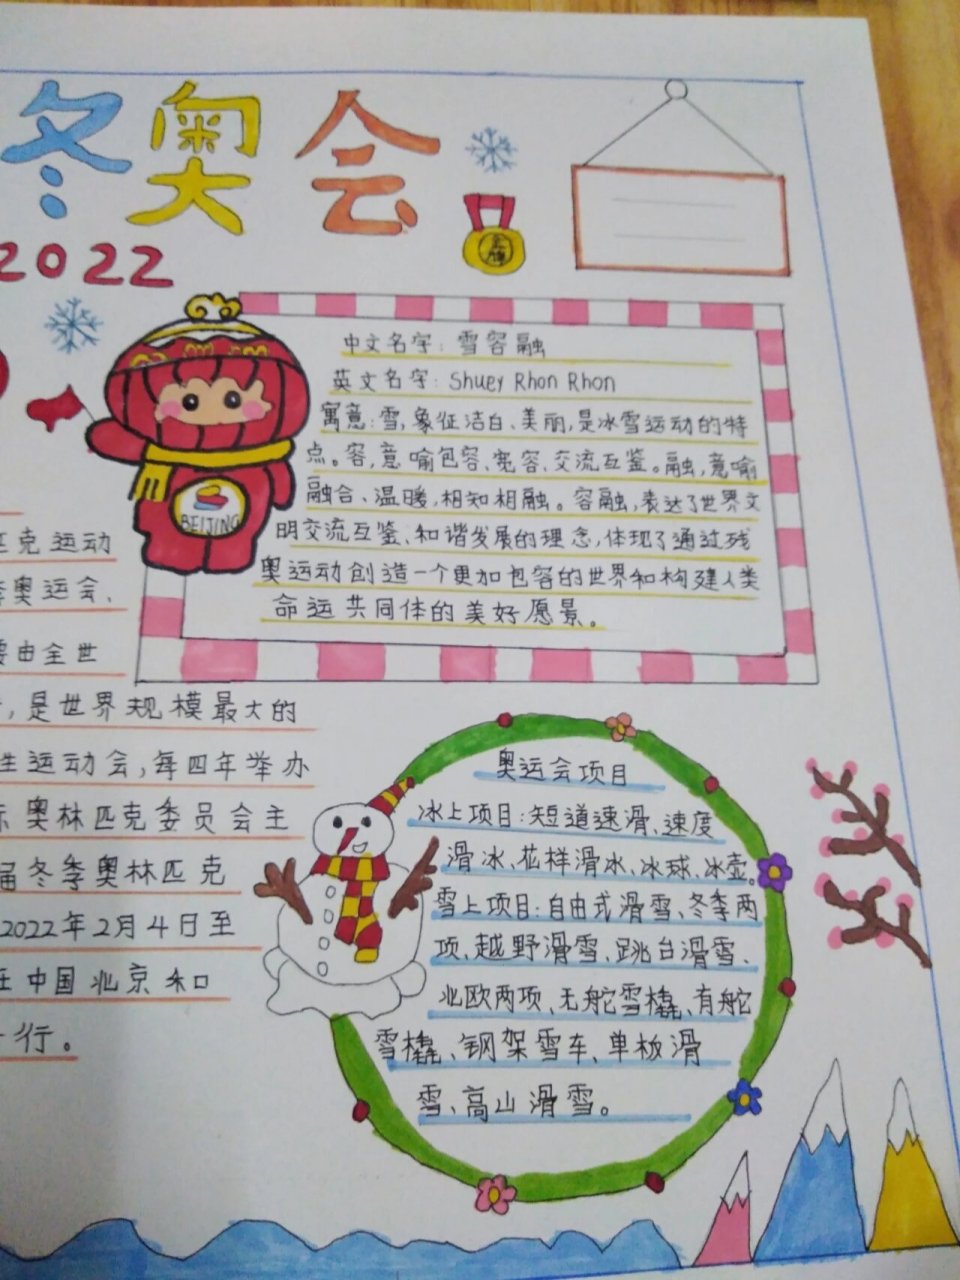 冬奥会
2022
金牌
BEIJING
中文名字：雪容融
英文名字：Shuey Rhon Rhon
寓意：雪，象征洁白、美丽，是冰雪运动的特
点。容，意喻包容、宽容、交流互鉴。融，意喻
融合、温暖，相知相融。容融，表达了世界文
明交流互鉴、和谐发展的理念，体现了通过残
奥运动创造一个更加包容的世界和构建人类
命运共同体的美好愿景。
匹克运动
季奥运会、
要由全世
，是世界规模最大的
性运动会，每四年举办
际奥林匹克委员会主
届冬季奥林匹克
2022年2月4日至
在中国北京和
行。
奥运会项目
冰上项目：短道速滑、速度
滑冰、花样滑冰、冰球、冰壶。
雪上项目：自由式滑雪、冬季两
项、越野滑雪、跳台滑雪、
北欧两项、无舵雪橇、有舵
雪橇、钢架雪车、单板滑
雪、高山滑雪。